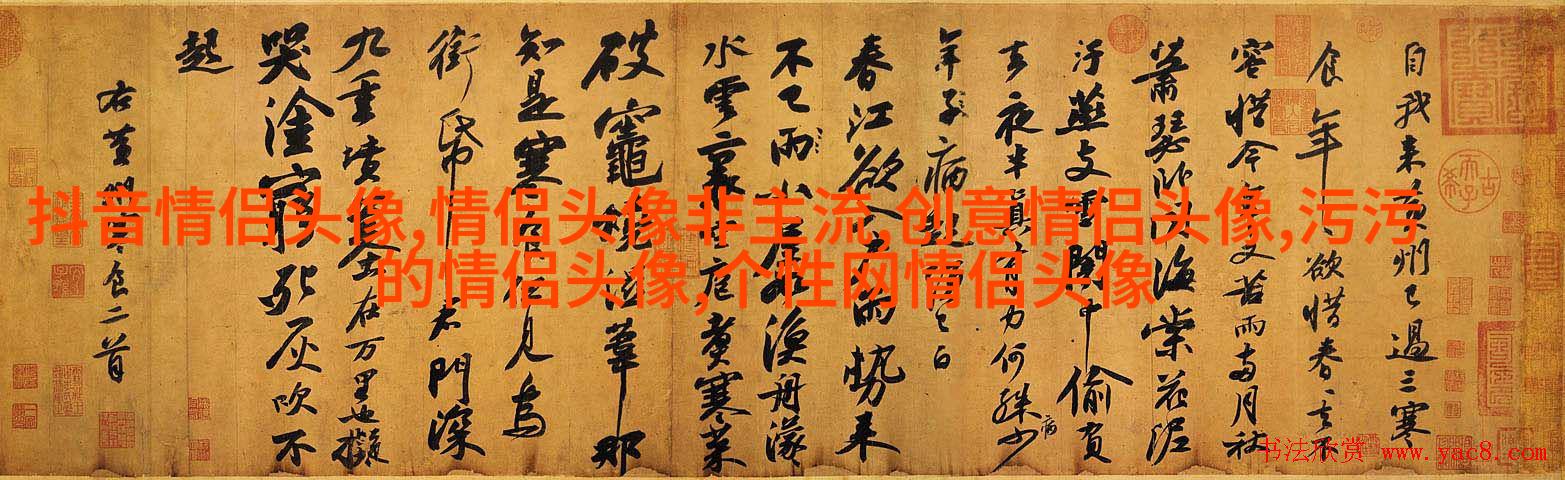 自我来黄州已過三寒
食年〻欲惜春〻去不
容惜今年又苦雨兩月秋
蕭瑟卧聞海棠花泥
汙燕支雪闇中偷負
去夜半真有力何殊少
病
年子病起頭已白
春江欲入户雨勢来
不已雨小屋如漁舟濛〻
水雲裏空庖煮寒菜
破竈燒濕葦那
知是寒食但見烏
銜帋君門深
九重墳墓在万里也擬
哭塗窮死灰吹不
起
右黄州寒食二首
抖音情侣头像,情侣头像非主流,创意情侣头像,污污
的情侣头像,个性网情侣头像
书法欣赏 www.yac8.com